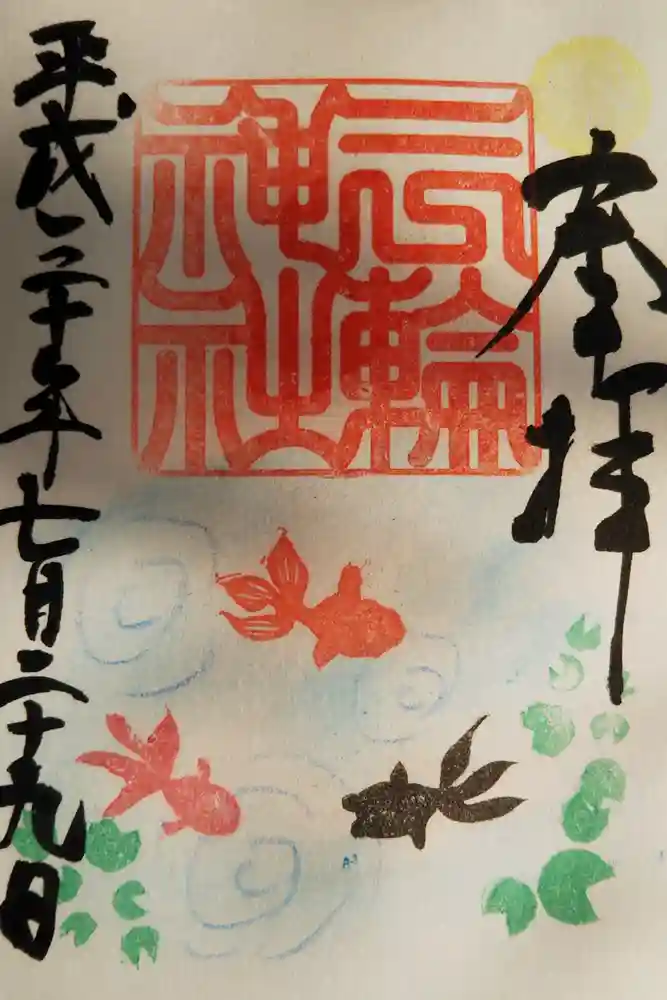 奉拝
三輪
神社
平成三十年七月二十九日